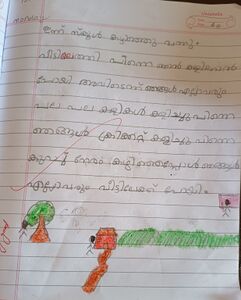 ഇന്ന് സ്കൂൾ കഴിഞ്ഞു വന്നു.
വീട്ടിലെത്തി പിന്നെ ഞാൻ കളിക്കാൻ
പോയി അവിടെ ഞങ്ങൾ എല്ലാവരും
പല പല കളികൾ കളിച്ചു പിന്നെ
ഞങ്ങൾ ക്രിക്കറ്റ് കളിച്ചു പിന്നെ
കുറച്ച് നേരം കഴിഞ്ഞപ്പോൾ ഞങ്ങൾ
എല്ലാവരും വീട്ടിലേക്ക് പോയി.